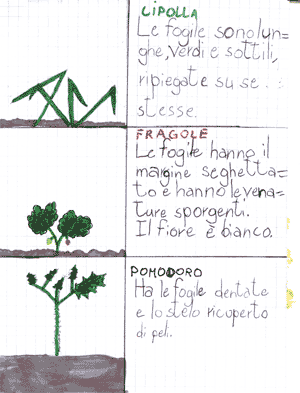 CIPOLLA
Le fogile sono lun=
ghe, verdi e sottili,
ripiegate su se
stesse.
FRAGOLE
Le fogile hanno il
margine seghetta=
to e hanno le vena=
ture sporgenti.
Il fiore è bianco.
POMODORO
Ha le fogile dentate
e lo stelo ricoperto
di peli.